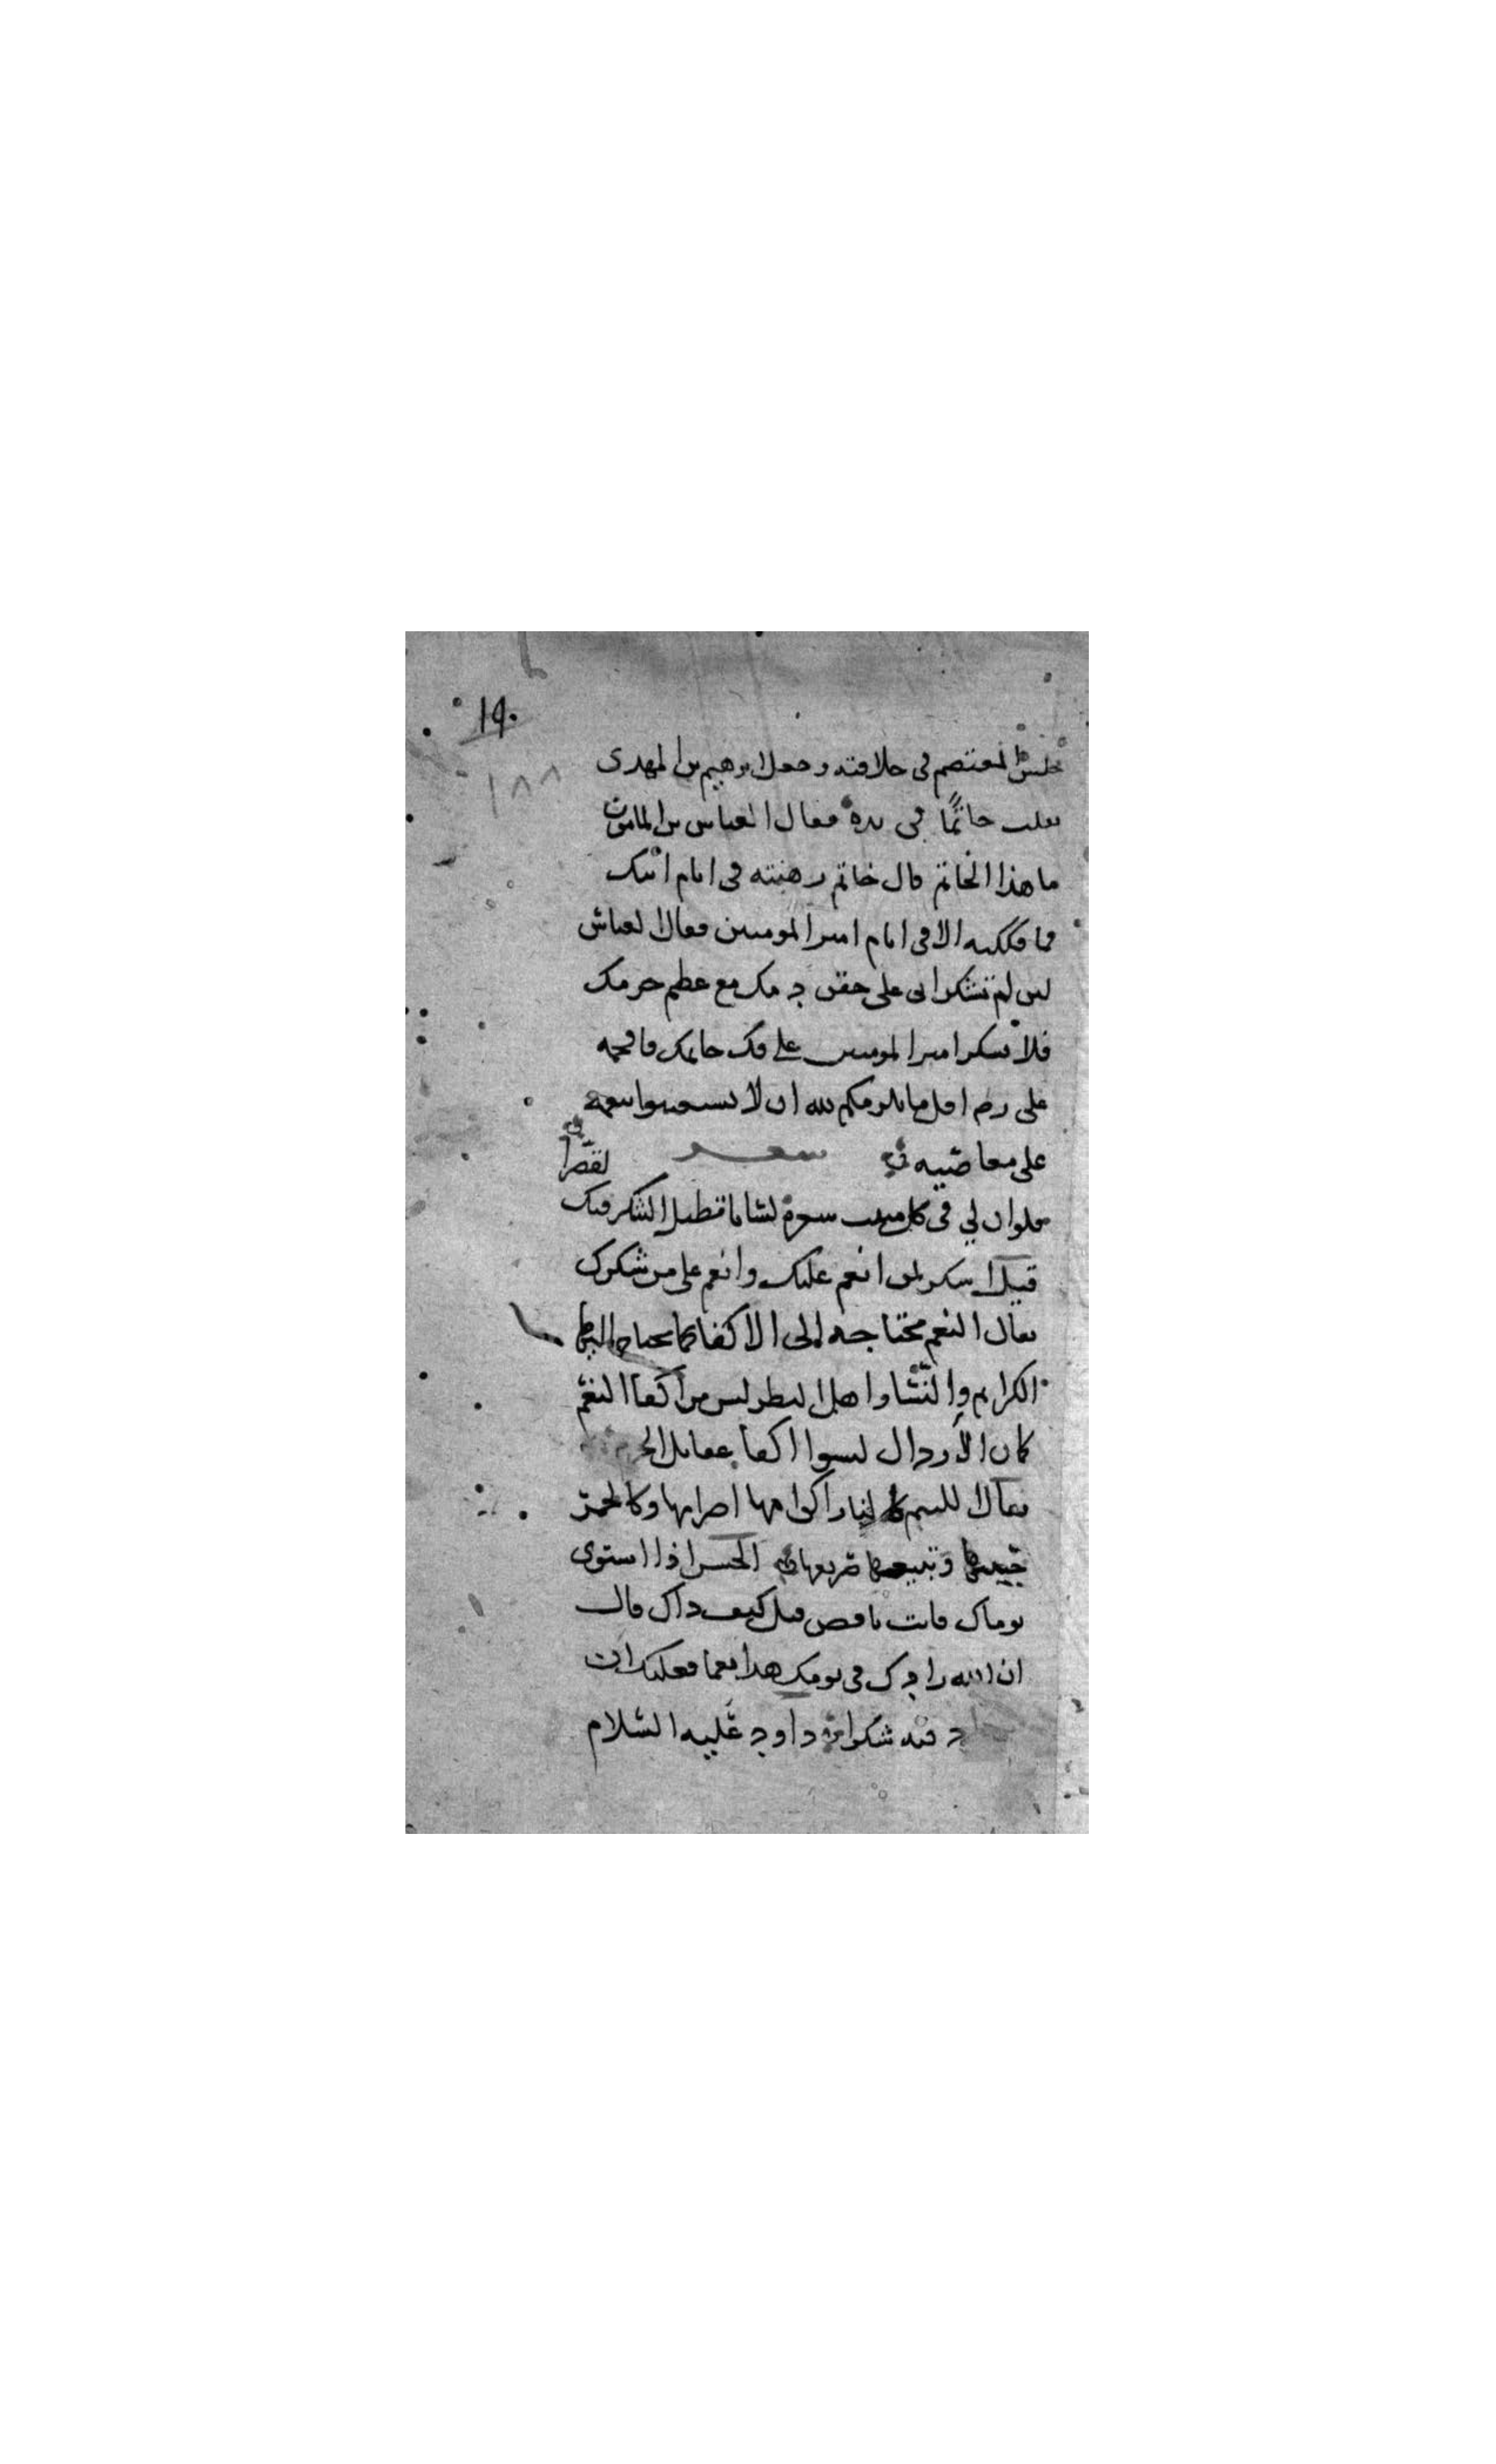 ١٩٠
١٨٨
جلس المعتصم في خلافته وجعل ابرهيم بن المهدي
يقلب خاتمًا في يده فقال العباس بن المامون
ما هذا الخاتم قال خاتم رهنته في ايام ابيك
فما فككته الا في ايام امير المومنين فقال العباس
لين لم تشكر ابى على حقن دمك مع عظم جرمك
فلا تشكر امير المومنين على فك خاتمك فافحمه
على رضه اقل ما يلزمكم لله ان لا تستعينوا بنعمه
على معاصيه شعر
فلو ان لي في كل منبت شعرة لسانا تطيل الشكر فيك لقصرا
قيل اشكر لمن انعم عليك وانعم على من شكرك
يقال النعم محتاجه الى الاكفا كما يحتاج اليها
الكرايم واهل البطر ليس من اكفا النعم
كما ان الارذال ليسوا اكفا عقايل
يقال
الحسن اذا استوى
يوماك فانت ناقص قيل كيف ذاك قال
ان الله زادك في يومك هذا نعما فعليك ان
فيه شكرا داود عليه السلام